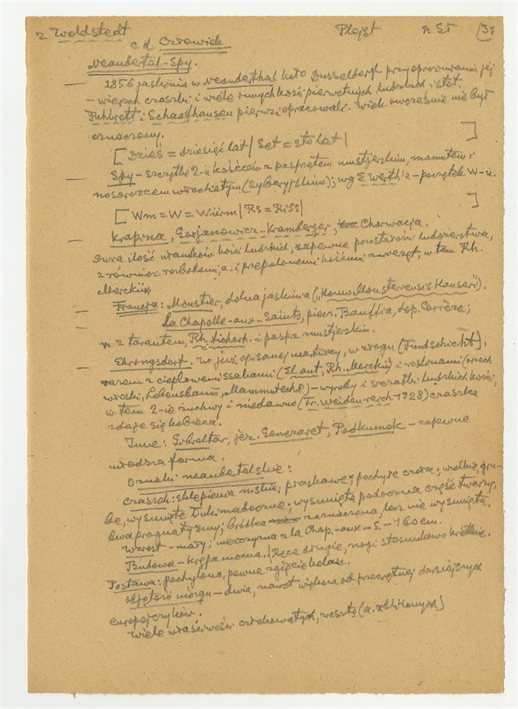 z Woldstedt Plejst r ST (31
c d Człowiek
Neandertal-Spy.
— 1856 jaskinia w Neanderthal koło Dusseldorf przy oprożnianiu jej
wierzch czaszki i wiele innych kości pierwotnych ludzkich i
Fuhlrott i Schaafhausen pierwsi opracowali. wiek owcześnie nie był
oznaczony.
[Dzieś = dziesięć lat | Set = sto lat]
— Spy – szczątki 2-u kośćców z posprzętem mustjerskim, mamutem i
nosorożcem włochatym (syberyjskim); wg E Werth'a – początek W-u.
[Wm = W = Würm | Rs = Riss]
— Krapina, Gorjanowicz-Kramberger, Chorwacja.
Duża ilość ułamków kości ludzkich, zapewne pozostałość ludożerstwa,
z również rozbitemi i przepalonemi kośćmi zwierząt, w tem Rh.
Merckii,
— Francja: Moustier, dolna jaskinia („Homo Mousteriensis Hauseri").
La Chapelle-aux-Saints, pierw. Bouffia, dep. Corrèze;
w z tarantem, Rh. tichorh. i pasprz mustjerskim.
— Ehringsdorf. W już opisanej martwicy, w srogu (Fundschicht),
razem z ciepłowemi ssakami (El. ant, Rh. Merckii) i roślinami (orzech
włoski, Lebensbaum, Mammutecke) – wyroby i szczątki ludzkich kości,
w tem 2-ie żuchwy i niedawno (Fr. Weidenreich 1928) czaszka
zdaje się kobieca.
Inne: Gibraltar, jez. Genezaret, Podkumok – zapewne
młodsza forma.
Oznaki neandertalskie:
czaszek: sklepienie niskie, płaskawe; pochyłe czoło; wielkie, gru-
be, wysunięte łuki nadoczne; wysunięta podoczna część twarzy,
dwa prognatyzmy; bródka zaznaczona, lecz nie wysunięta.
Wzrost – mały; mężczyzna z La Chap.-aux-S. – 160 cm.
Budowa – krępa mocna. Ręce długie, nogi stosunkowo krótkie.
Postawa: pochylona, pewne zgięcie kolan.
objętość mózgu – duża, nawet większa od przeciętnej dzisiejszych
europejczyków.
Wiele właściwości człekowatych, resztę